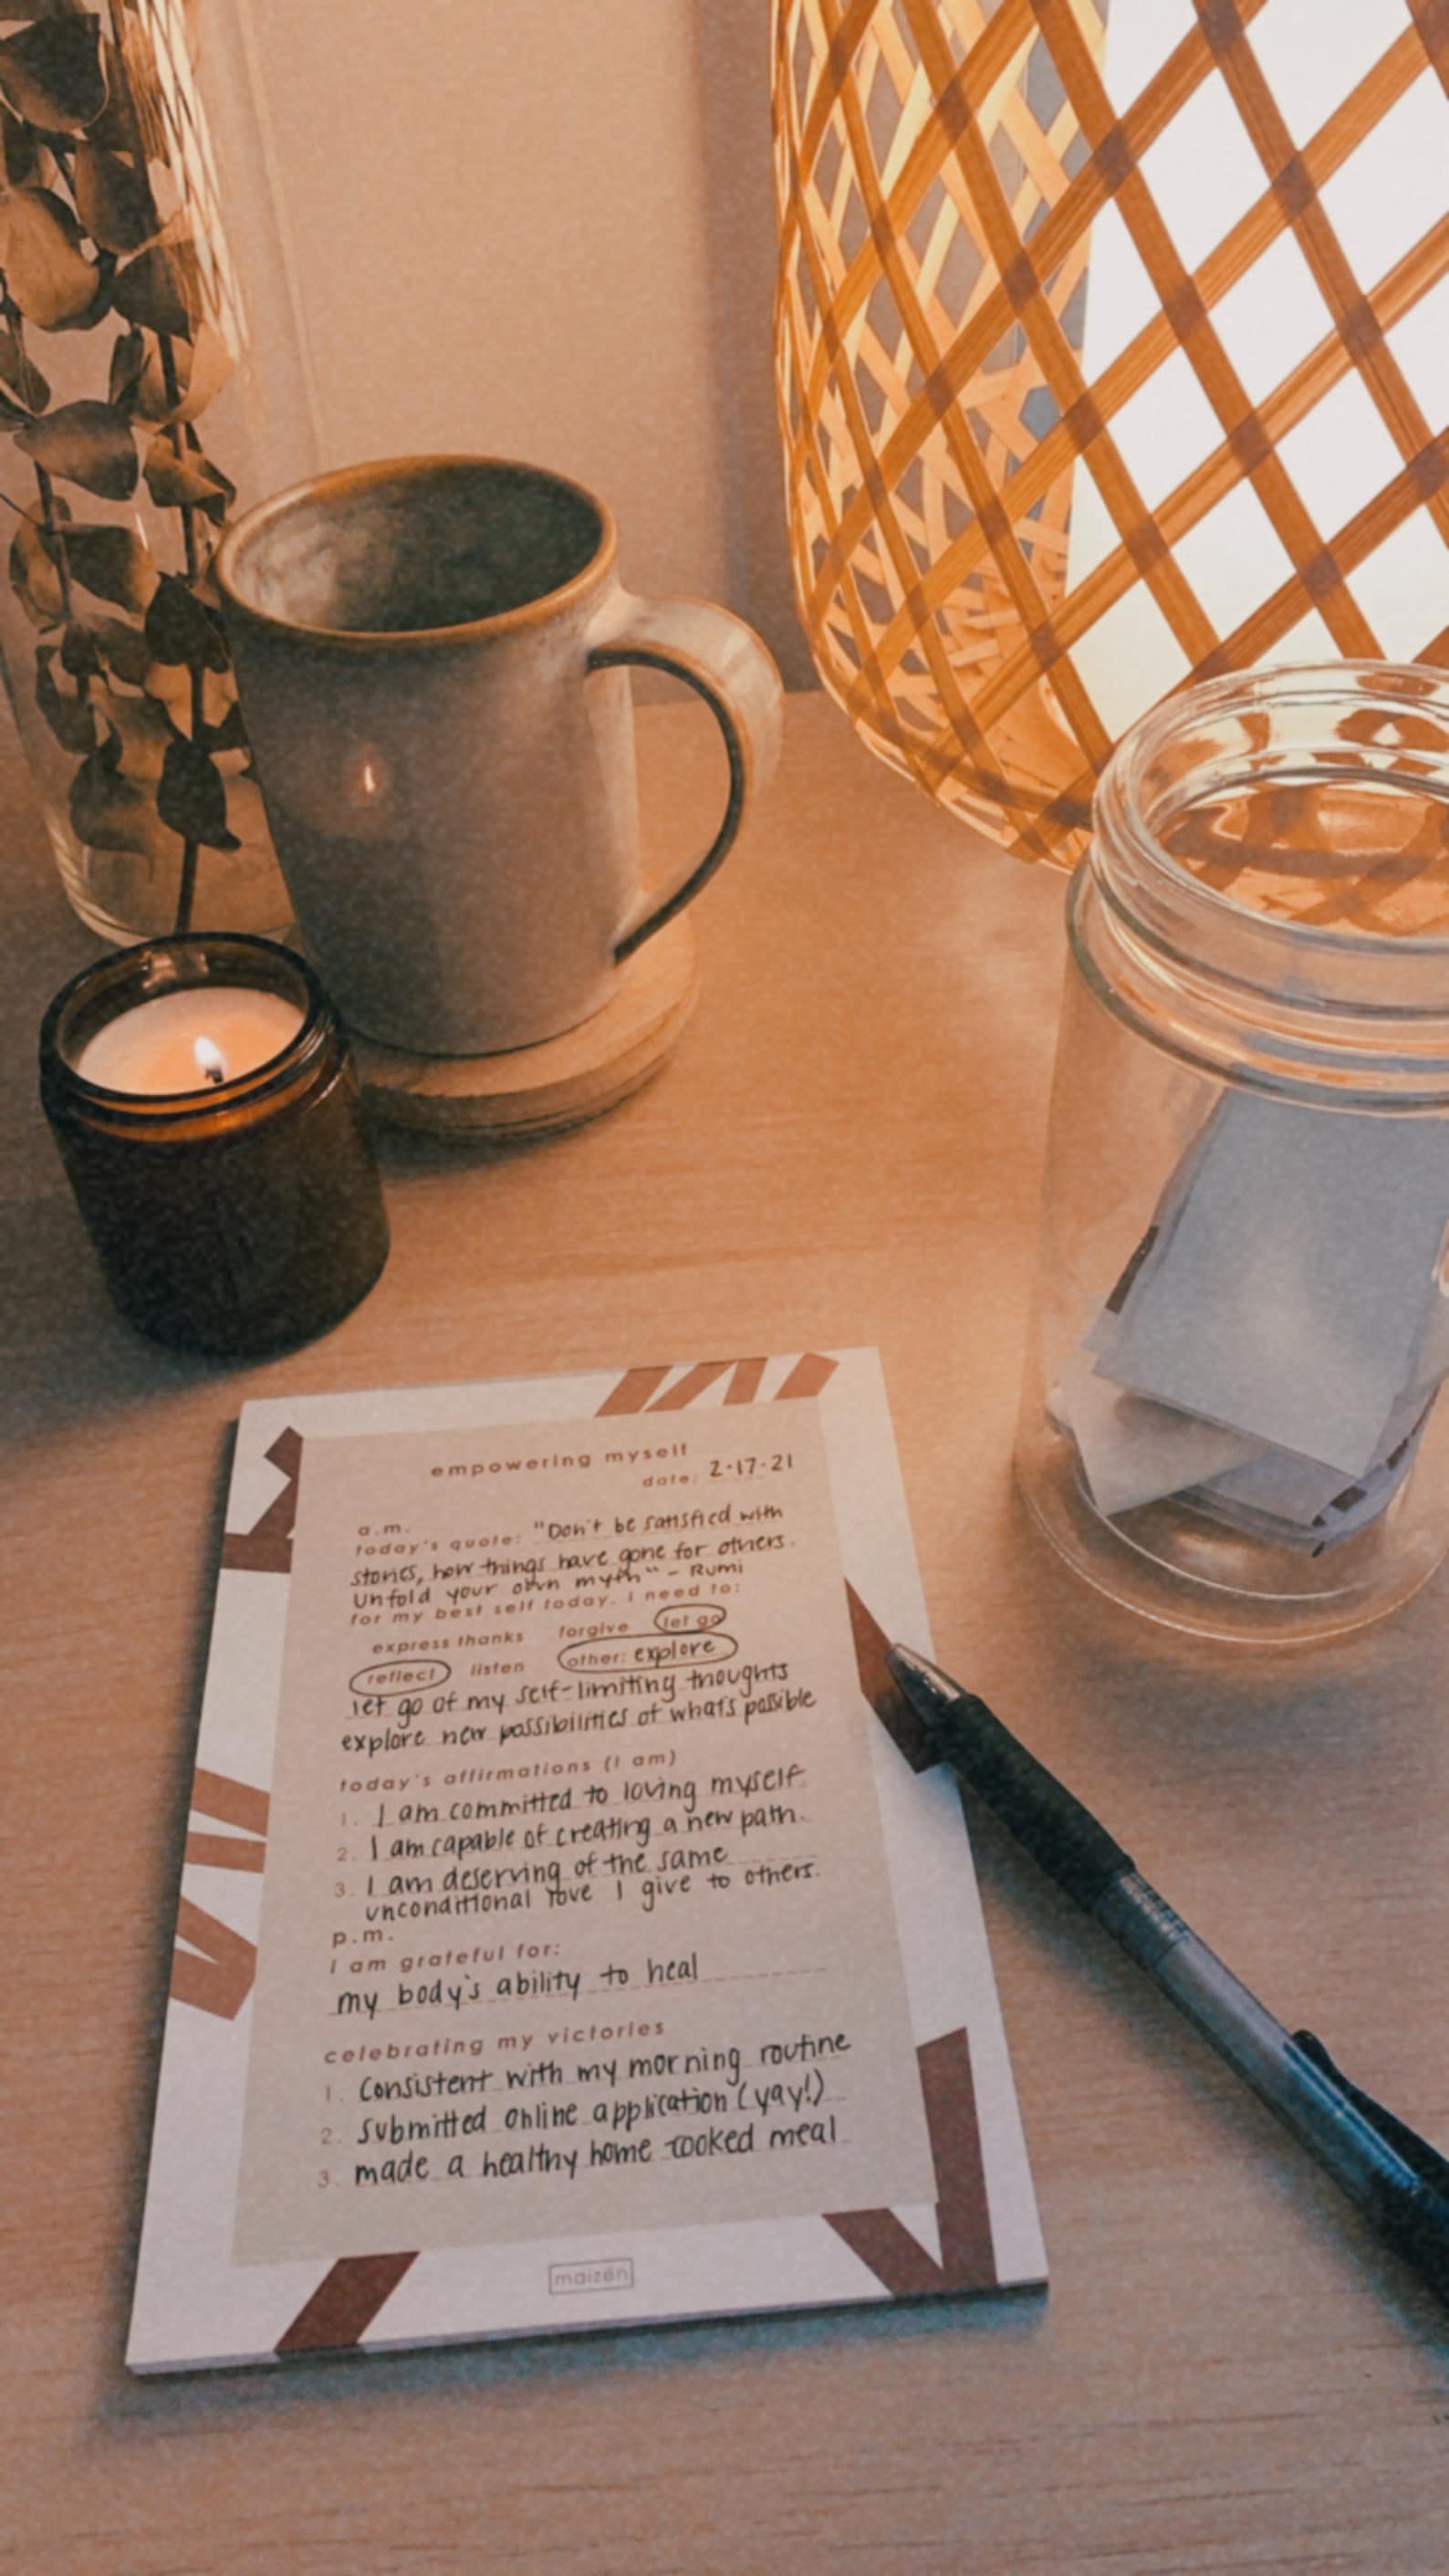 empowering myself
date: 2·17·21
a.m.
today's quote: "Don't be satisfied with
stories, how things have gone for others.
Unfold your own myth" - Rumi
for my best self today, I need to:
express thanks forgive let go
reflect listen other: explore
let go of my self-limiting thoughts
explore new possibilities of what's possible
today's affirmations (I am)
1. I am committed to loving myself.
2. I am capable of creating a new path.
3. I am deserving of the same
unconditional love I give to others.
p.m.
I am grateful for:
my body's ability to heal
celebrating my victories
1. Consistent with my morning routine
2. Submitted online application (yay!)
3. made a healthy home cooked meal
maizën